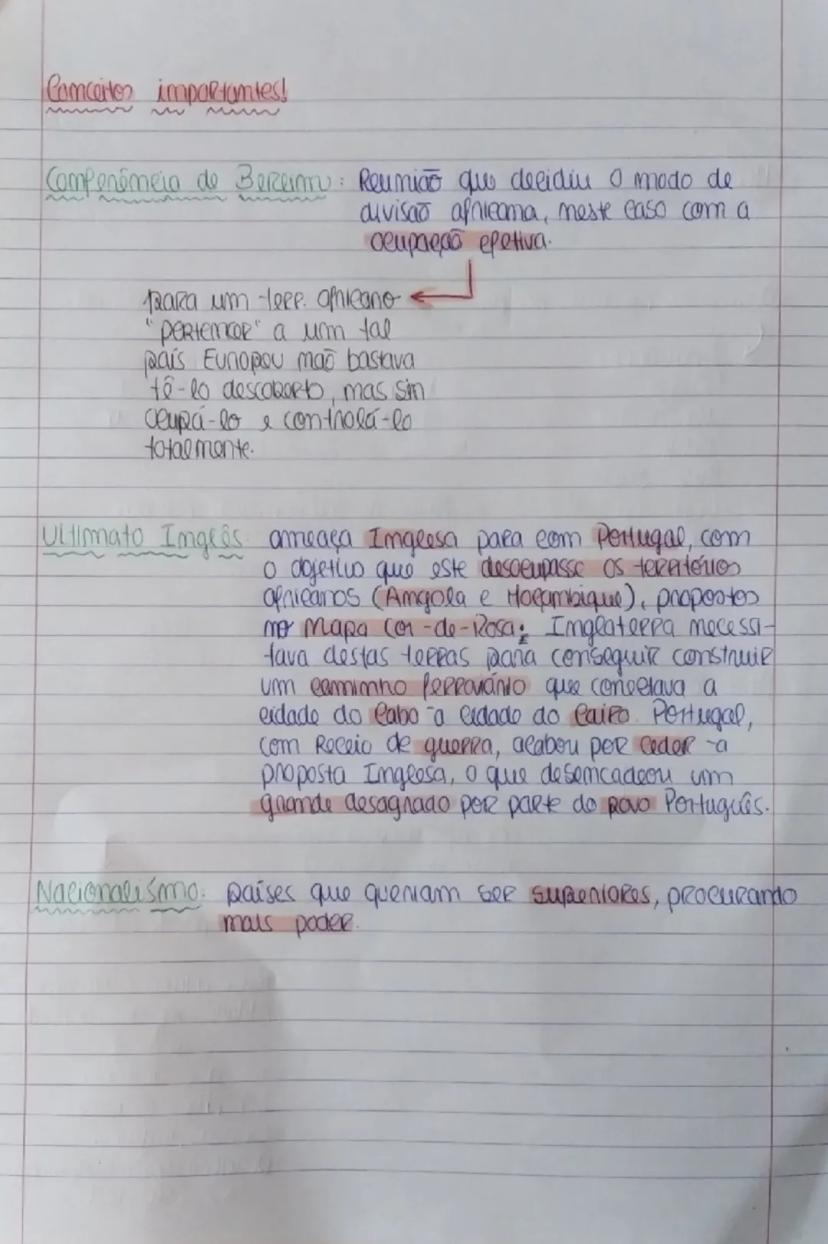 Conceitos importantes!
Conferência de Berlim: Reunião que decidiu o modo de
divisão africana, neste caso com a
ocupação efetiva.
para um terr. africano
"pertencer" a um tal
país Europeu não bastava
tê-lo descoberto, mas sim
ocupá-lo e controlá-lo
totalmente.
Ultimato Inglês: ameaça Inglesa para com Portugal, com
o objetivo que este desocupasse os territórios
africanos (Angola e Moçambique), propostos
no Mapa Cor-de-Rosa; Inglaterra necessi-
tava destas terras para conseguir construir
um caminho ferroviário que conectava a
cidade do Cabo à cidade do Cairo. Portugal,
com receio de guerra, acabou por ceder à
proposta Inglesa, o que desencadeou um
grande desagrado por parte do povo Português.
Nacionalismo: países que queriam ser superiores, procurando
mais poder.